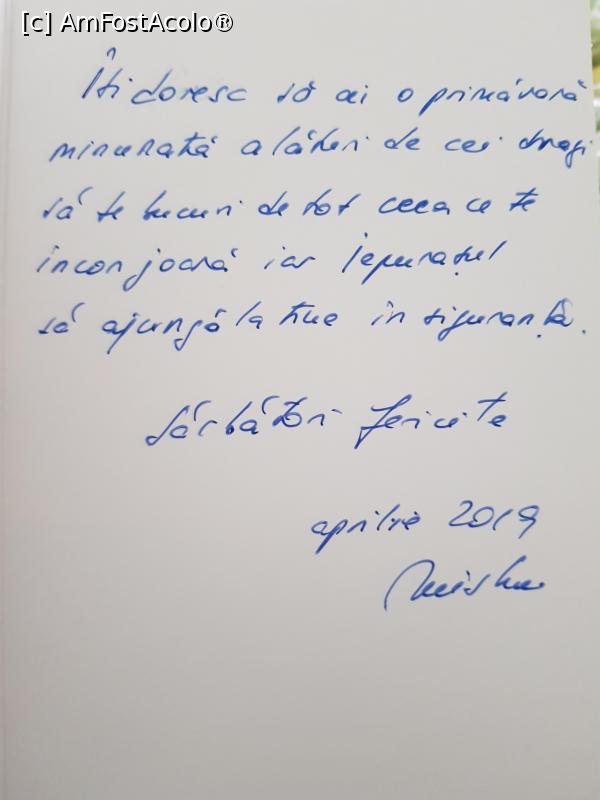 [c] AmFostAcolo®
Îți doresc să ai o primăvară
minunată alături de cei dragi
să te bucuri de tot ceea ce te
inconjoară iar Iepurațul
să ajungă la tine în siguranță.
Sărbători fericite
aprilie 2019